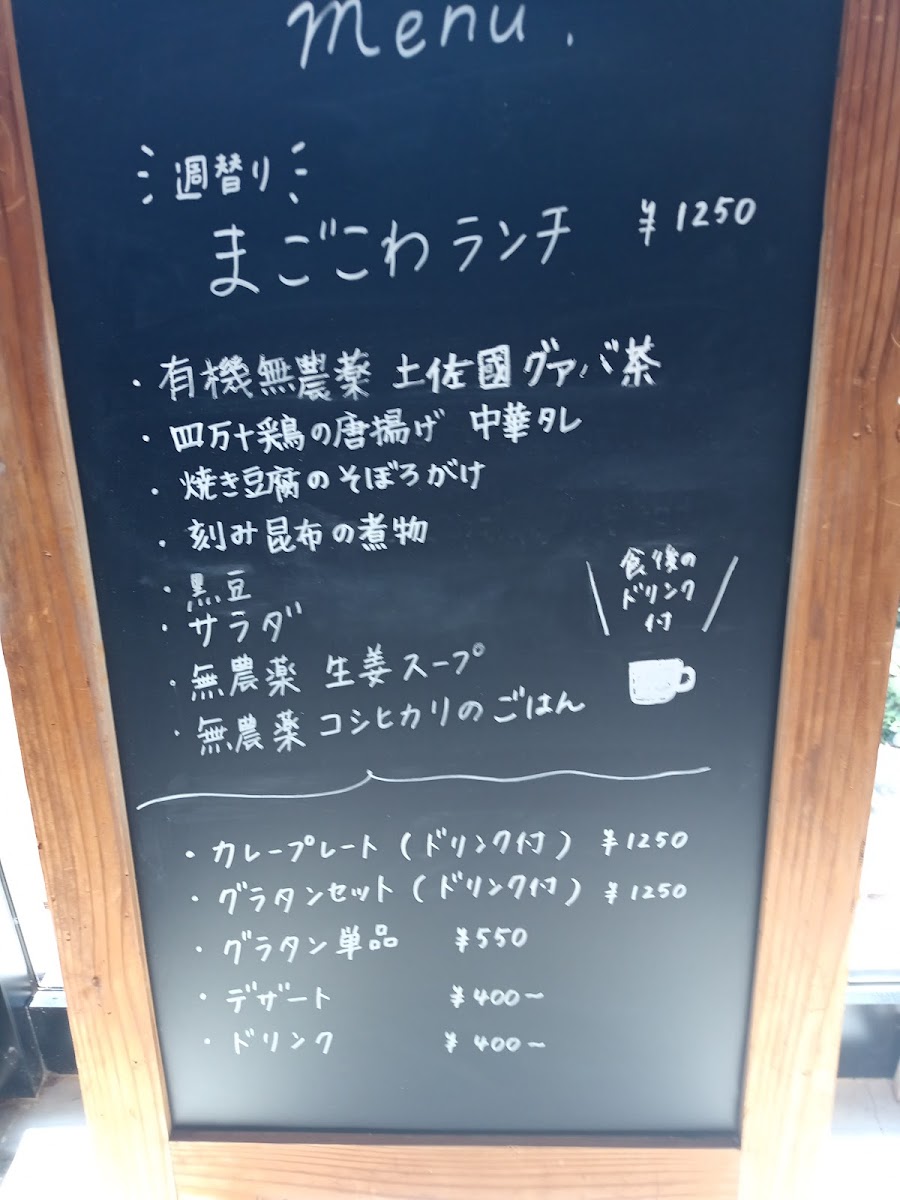 Menu.
週替り
まごこわランチ ¥1250
・有機無農薬 土佐國グァバ茶
・四万十鶏の唐揚げ 中華タレ
・焼き豆腐のそぼろがけ
・刻み昆布の煮物
・黒豆
・サラダ
・無農薬 生姜スープ
・無農薬 コシヒカリのごはん
食後の
ドリンク
付
・カレープレート(ドリンク付) ¥1250
・グラタンセット(ドリンク付) ¥1250
・グラタン単品 ¥550
・デザート ¥400～
・ドリンク ¥400～